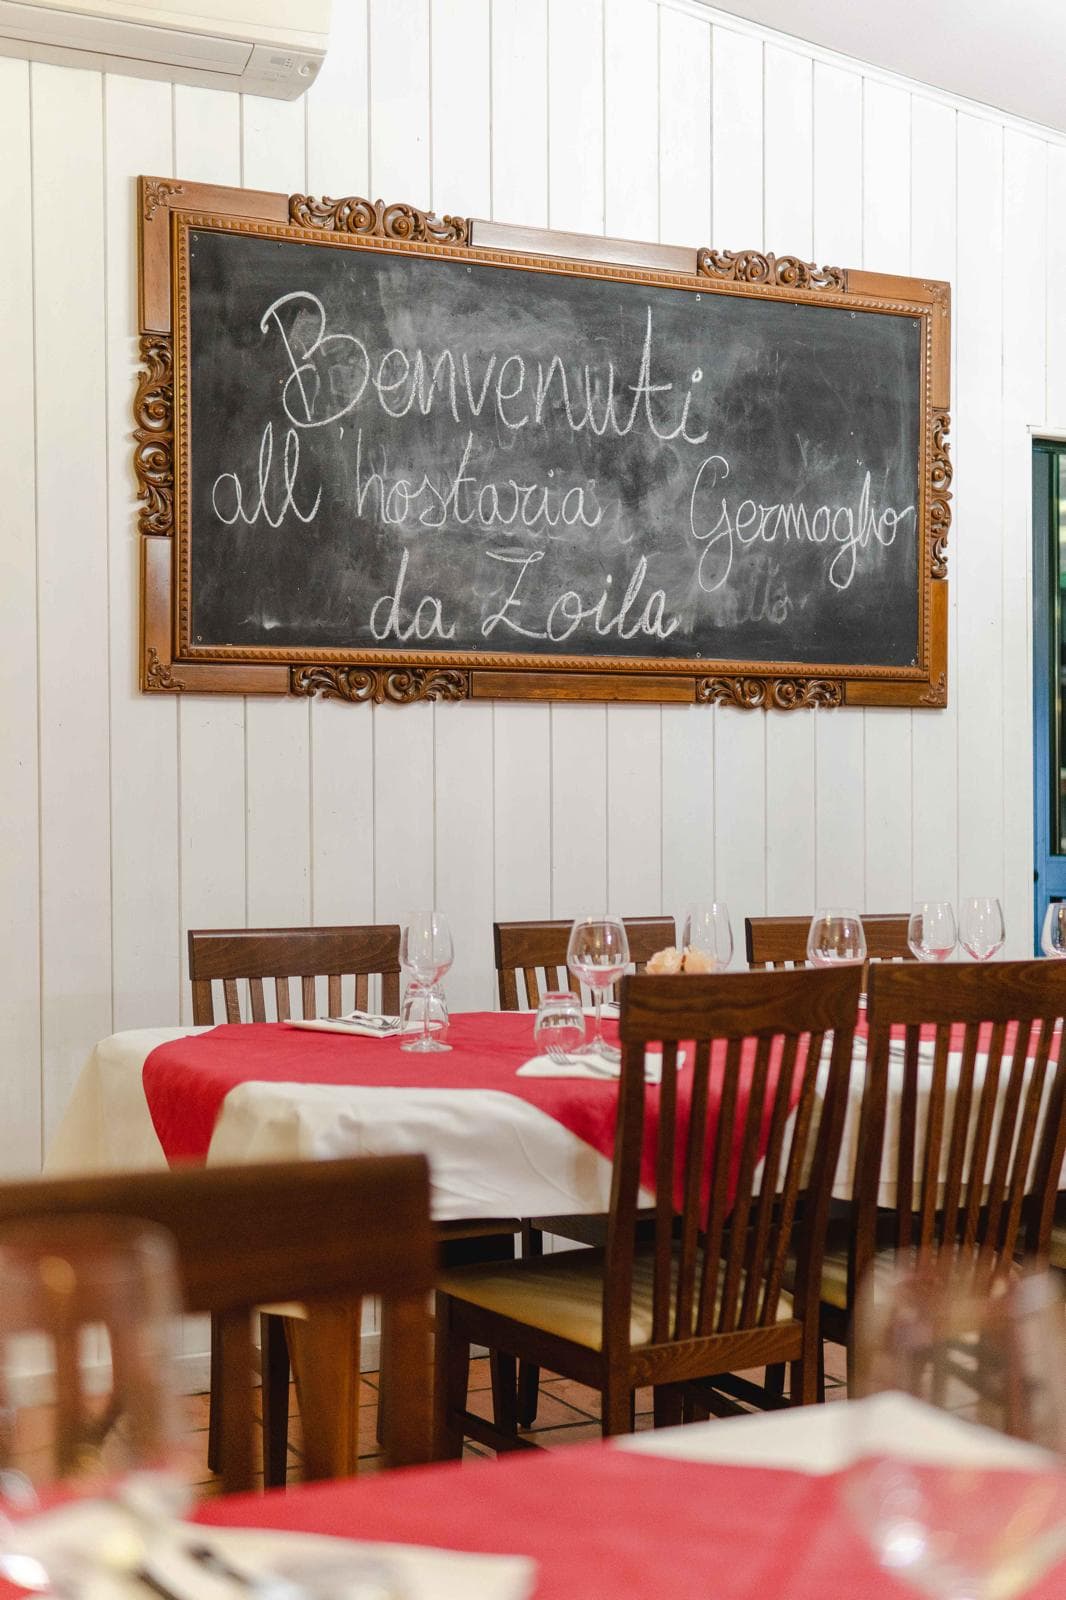 Benvenuti
all'hostaria Germoglio
da Zoila